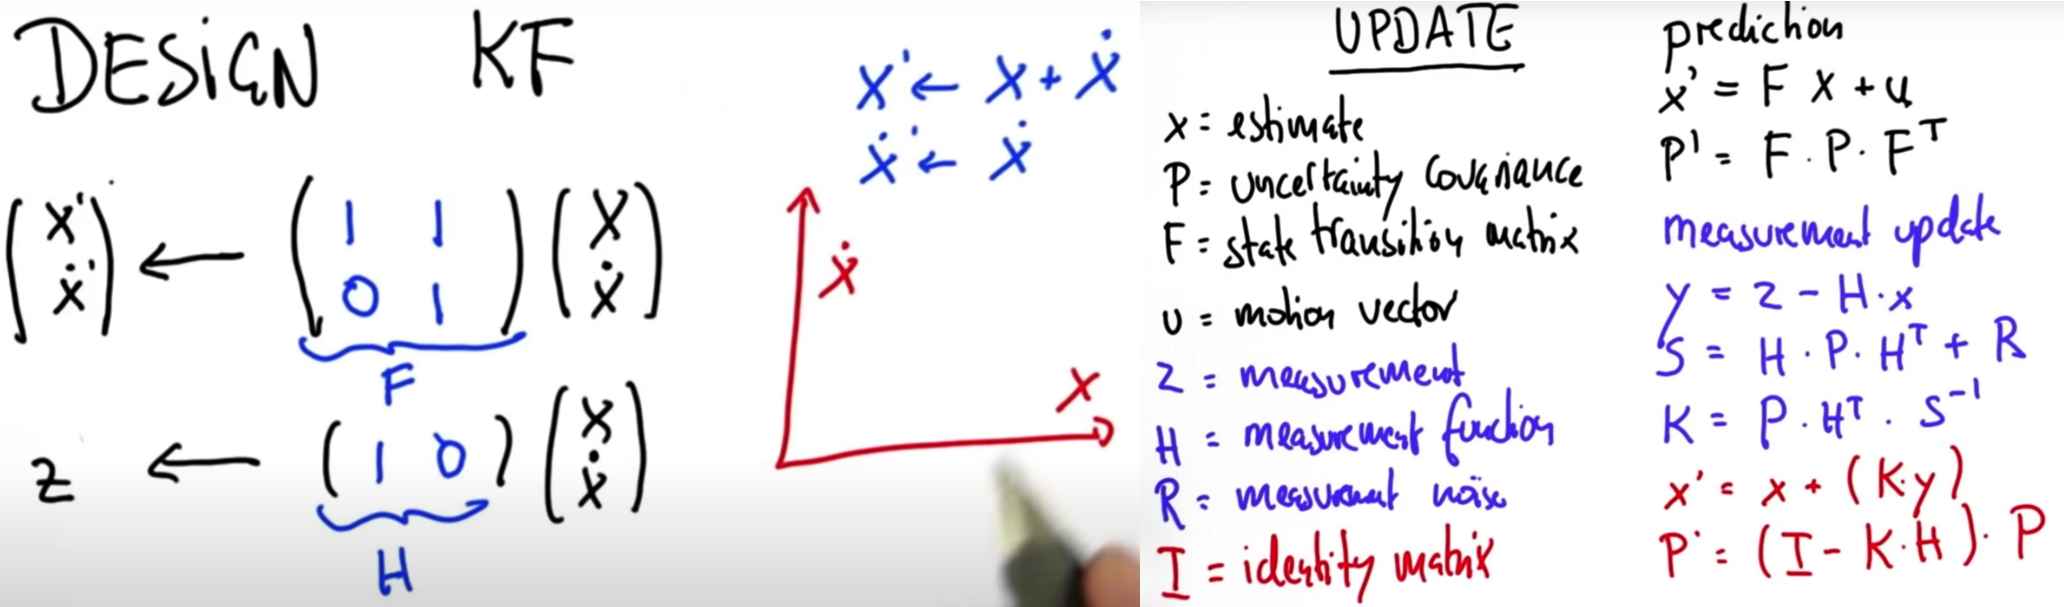 DESIGN KF
x' ← x + ẋ
ẋ' ← ẋ
(x' ẋ') ← (1 1 0 1) (x ẋ)
F
z ← (1 0) (x ẋ)
H
ẋ
x
UPDATE
x = estimate
P = uncertainty covariance
F = state transition matrix
u = motion vector
z = measurement
H = measurement function
R = measurement noise
I = identity matrix
prediction
x' = F x + u
P' = F · P · Fᵀ
measurement update
y = z - H · x
S = H · P · Hᵀ + R
K = P · Hᵀ · S⁻¹
x' = x + (K·y)
P' = (I - K·H) · P